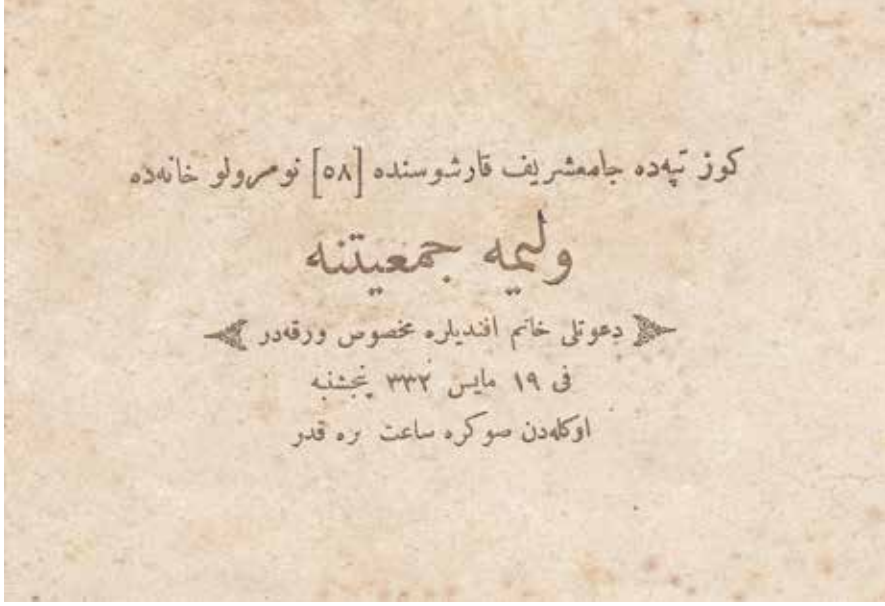 كوز تپه‌ده جامعشريف قارشوسنده [٥٨] نومرولو خانه‌ده
وليمه جمعيتنه
دعوتلى خانم افنديلره مخصوص ورقه‌در
فى ١٩ مايس ٣٣٢ پنجشنبه
اوكله‌دن صوكره ساعت بره قدر